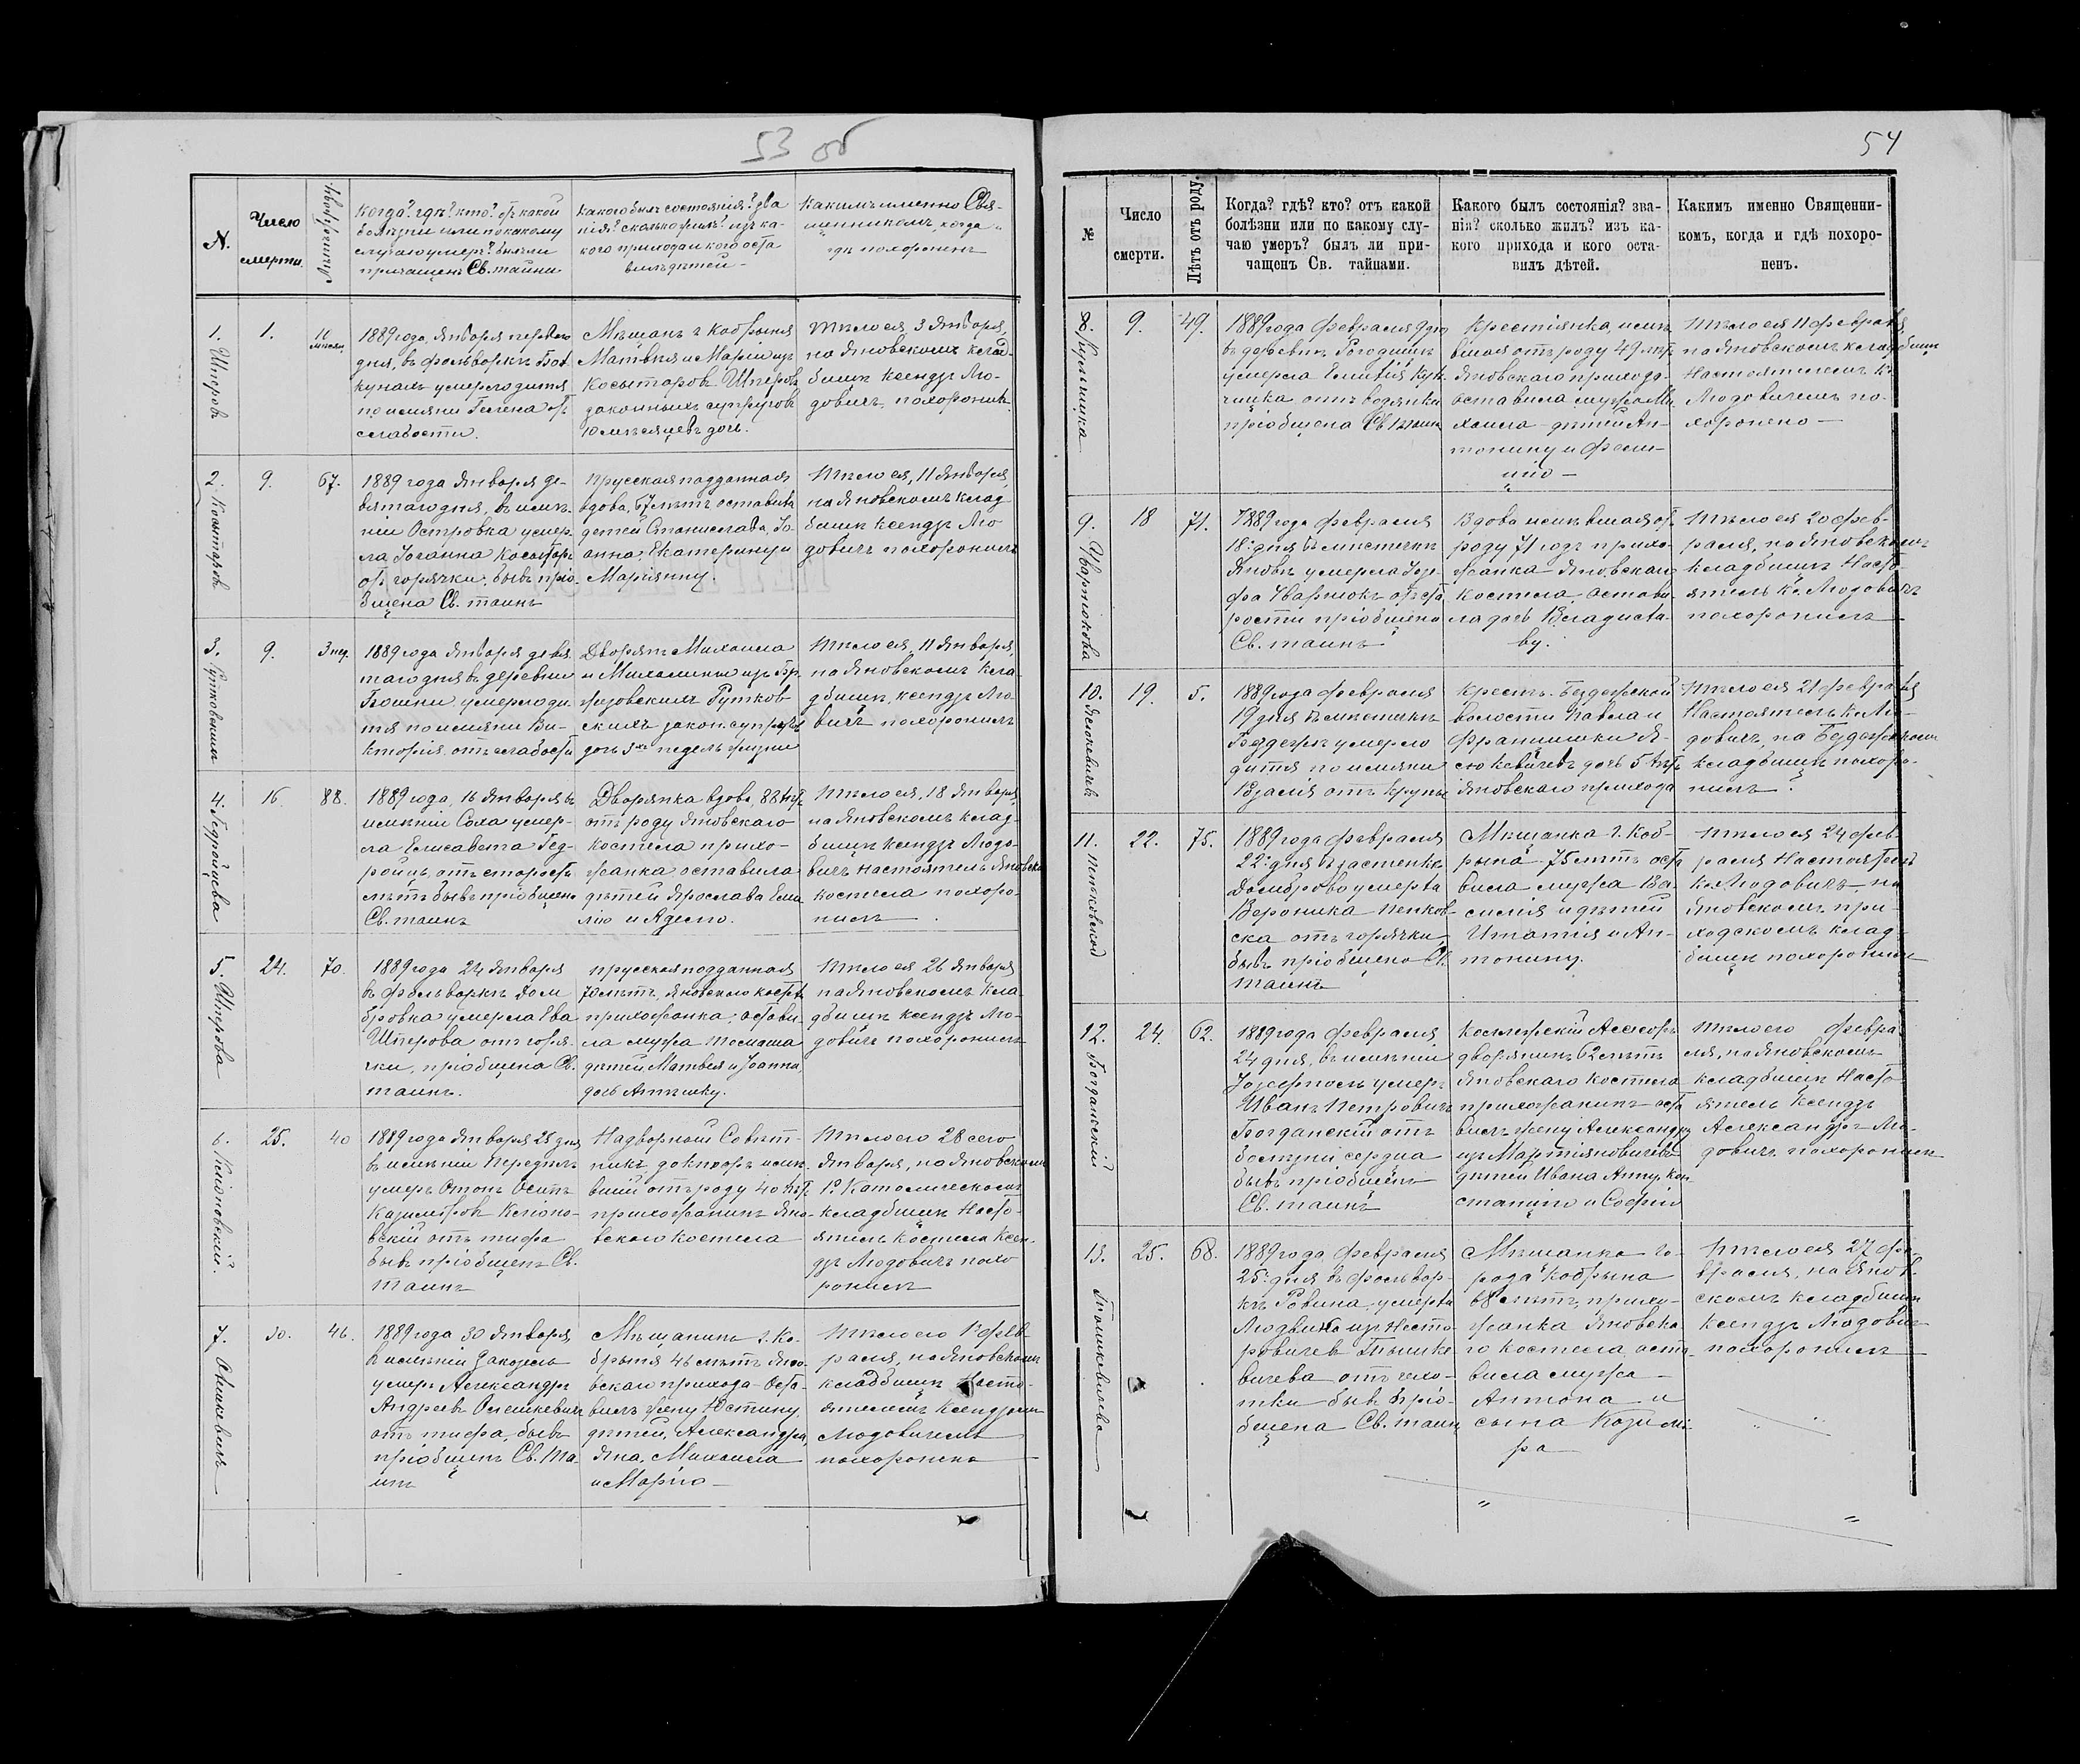 53 об
N.
Число
смерти.
Лѣтъ отъ роду
Когда? гдѣ? кто? отъ какой
болѣзни или по какому
случаю умеръ? былъ ли
причащенъ Св. тайнами
Какого былъ состоянія? зва
нія? сколько жилъ? изъ ка-
кого прихода и кого оста
вилъ дѣтей -
Какимъ именно Свя-
щенникомъ, когда и
гдѣ похороненъ
1.
Шперовъ
1.
10
мѣсяц.
1889 года, Января перваго
дня, въ фольваркѣ
умерло дитя
по имяни Гелена отъ
слабости.
Мѣщанъ г. Кобрыня
Матвѣя и Маріи изъ
Косьтаровъ Шперовъ
законныхъ супруговъ
10 мѣсяцевъ дочь.
Тѣло ея, 3 Января,
на Яновскомъ клад-
бищѣ Ксендзъ Лю-
довичъ похоронилъ.
2.
9.
67.
1889 года Января де-
вятаго дня, въ имѣ-
ніи Островка умер
ла Іоганна
отъ горячки, бывъ пріо-
бщена Св. таинъ
Прусская подданная
вдова, 67 лѣтъ оставила
детей Станислава, Іо-
анна, Екатерину и
Маріянну.
Тѣло ея, 11 Января,
на Яновскомъ клад
бищѣ Ксендзъ Лю
довичъ похоронилъ
3.
Рутковскихъ
9.
3 нед.
1889 года Января девя
таго дня въ деревни
умерло ди
тя по имяни Ви-
кторія, отъ слабости
Дворянъ Михаила
и Михалины изъ Бр
жозовскихъ Рутков
скихъ закон. супруговъ
дочь 3хъ недель жизни
Тѣло ея, 11 Января,
на Яновскомъ кла
дбищѣ, ксендзъ Лю-
вичъ похоронилъ
4.
Гедройцева
16.
88.
1889 года, 16 Января въ
имѣніи Соха умер-
ла Елисавета Гед-
ройцъ, отъ старости
лѣтъ бывъ пріобщена
Св. таинъ
Дворянка вдова, 88 лѣтъ
отъ роду Яновскаго
костела прихо-
жанка оставила
дѣтей Ярослава Еми
лію и Аделю.
Тѣло ея, 18 Января,
на Яновскомъ клад-
бищѣ Ксендзъ Людо-
вичъ Настоятель Яновска
костела похоро-
нилъ
5.
Шперова
24.
70.
1889 года 24 Января
въ фольваркѣ Дом
бровка умерла Ева
Шперова отъ горя-
чки, пріобщена Св.
таинъ.
Прусская подданная
70 лѣтъ, Яновскаго костела
прихожанка, остави-
ла мужа Томаша
дѣтей Матвея и Іоанна
дочь
Тѣло ея 26 Января
на Яновскомъ кла
дбищѣ ксендзъ Лю-
довичъ похоронилъ
6.
25.
40
1889 года Января 25 дня
въ имѣніи
умеръ Осипъ
Казиміровъ
вскій отъ тифа
бывъ пріобщенъ Св.
таинъ
Надворный Совѣт-
никъ, докторъ имѣ-
вшій отъ роду 40 лѣтъ
прихожанинъ Яно-
вскаго костела
Тѣло его 28 сего
Января, на Яновскомъ
Р. Католическомъ
кладбищѣ Насто-
ятель костела Ксен-
дзъ Людовичъ похо
ронилъ
7.
30.
46.
1889 года 30 Января
въ имѣніи Закозель
умеръ Александръ
Андреевъ Олешкевичъ
отъ тифа бывъ
пріобщенъ Св. Та
инъ
Мѣщанинъ г. Ко-
брыня 46 лѣтъ Яно-
вскаго прихода Оста-
вилъ жену Юстину,
дѣтей, Александра,
Яна, Михаила
и Марію -
Тѣло его 1 фев-
раля, на Яновскомъ
кладбищѣ Насто-
ятелемъ Ксендзомъ
Людовичемъ
похоронено
54
№
Число
смерти.
Лѣтъ отъ роду.
Когда? гдѣ? кто? отъ какой
болѣзни или по какому слу-
чаю умеръ? былъ ли при-
чащенъ Св. тайнами.
Какого былъ состоянія? зва-
нія? сколько жилъ? изъ ка-
кого прихода и кого оста-
вилъ дѣтей.
Какимъ именно Священни-
комъ, когда и гдѣ похоро-
ненъ.
8.
9.
49.
1889 года февраля 9 дня
въ деревнѣ
умерла Емилія
отъ водянки
пріобщена Св. таинъ
Крестіянка, имѣ-
вшая отъ роду 49 лѣтъ
Яновскаго прихода
оставила мужа Ми
хаила дѣтей Ан-
тонину и Фели-
цію -
Тѣло ея 11 февраля
на Яновскомъ кладбищѣ
Настоятелемъ К.
Людовичемъ по-
хоронено -
9.
18
71.
1889 года февраля
18 дня въ мѣстечкѣ
Яновѣ умерла Іозе-
фа отъ ста
рости пріобщена
Св. таинъ
Вдова имѣвшая отъ
роду 71 годъ прихо-
жанка Яновскаго
костела, остави-
ла дочь Владисла-
ву.
Тѣло ея 20 фев-
раля, на Яновскомъ
кладбищѣ Насто-
ятель Кс. Людовичъ
похоронилъ
10.
19.
5.
1889 года февраля
19 дня въ мѣстечкѣ
Бездежѣ умерло
дитя по имяни
отъ крупы
Крест. Бездежской
волости Павла и
Францишки Я-
сюкевичевъ дочь 5 лѣтъ
Яновскаго прихода
Тѣло ея 21 февраля
Настоятель Кс. Лю-
довичъ, на Бездежскомъ
кладбищѣ похоро-
нилъ.
11.
22.
75.
1889 года февраля
22 дня въ застенкѣ
Домброво умерла
Вероника Пенков-
ска отъ горячки,
бывъ пріобщена Св.
таинъ
Мѣщанка г. Коб-
рына 75 лѣтъ оста
вила мужа Ва-
силія и дѣтей
Игнатія и Ан-
тонину.
Тѣло ея 24 фев-
раля Настоятель
Кс. Людовичъ, на
Яновскомъ при-
ходскомъ клад-
бищѣ похоронилъ
12.
Богданскій
24.
62.
1889 года февраля
24 дня, въ имѣніи
Іозефполь умеръ
Иванъ Петровичъ
Богданскій отъ
болезни сердца
бывъ пріобщенъ
Св. таинъ
Коллежскій Асесоръ
дворянинъ 62 лѣтъ
Яновскаго костела
прихожанинъ оста
вилъ жену Александру
изъ Мартіяновичевъ
дѣтей Ивана Анну, Кон
станцію и Софію
Тѣло его февра
ля, на Яновскомъ
кладбищѣ Насто
ятель Ксендзъ
Александръ Лю-
довичъ похоронилъ
13.
25.
68.
1889 года февраля
25 дня въ фольвар-
кѣ Ровина, умерла
Людвика изъ Несто-
ровичев
вичева отъ чахо-
тки бывъ прio-
бщена Св. таинъ
Мѣщанка го-
рода Кобрына
68 лѣтъ, прихо-
жанка Яновска
го костела оста-
вила мужа -
Антона и
сына Казимi-
ра
Тѣло ея 27 фе-
враля, на Янов-
скомъ кладбищѣ
Ксендзъ Людович
похоронилъ